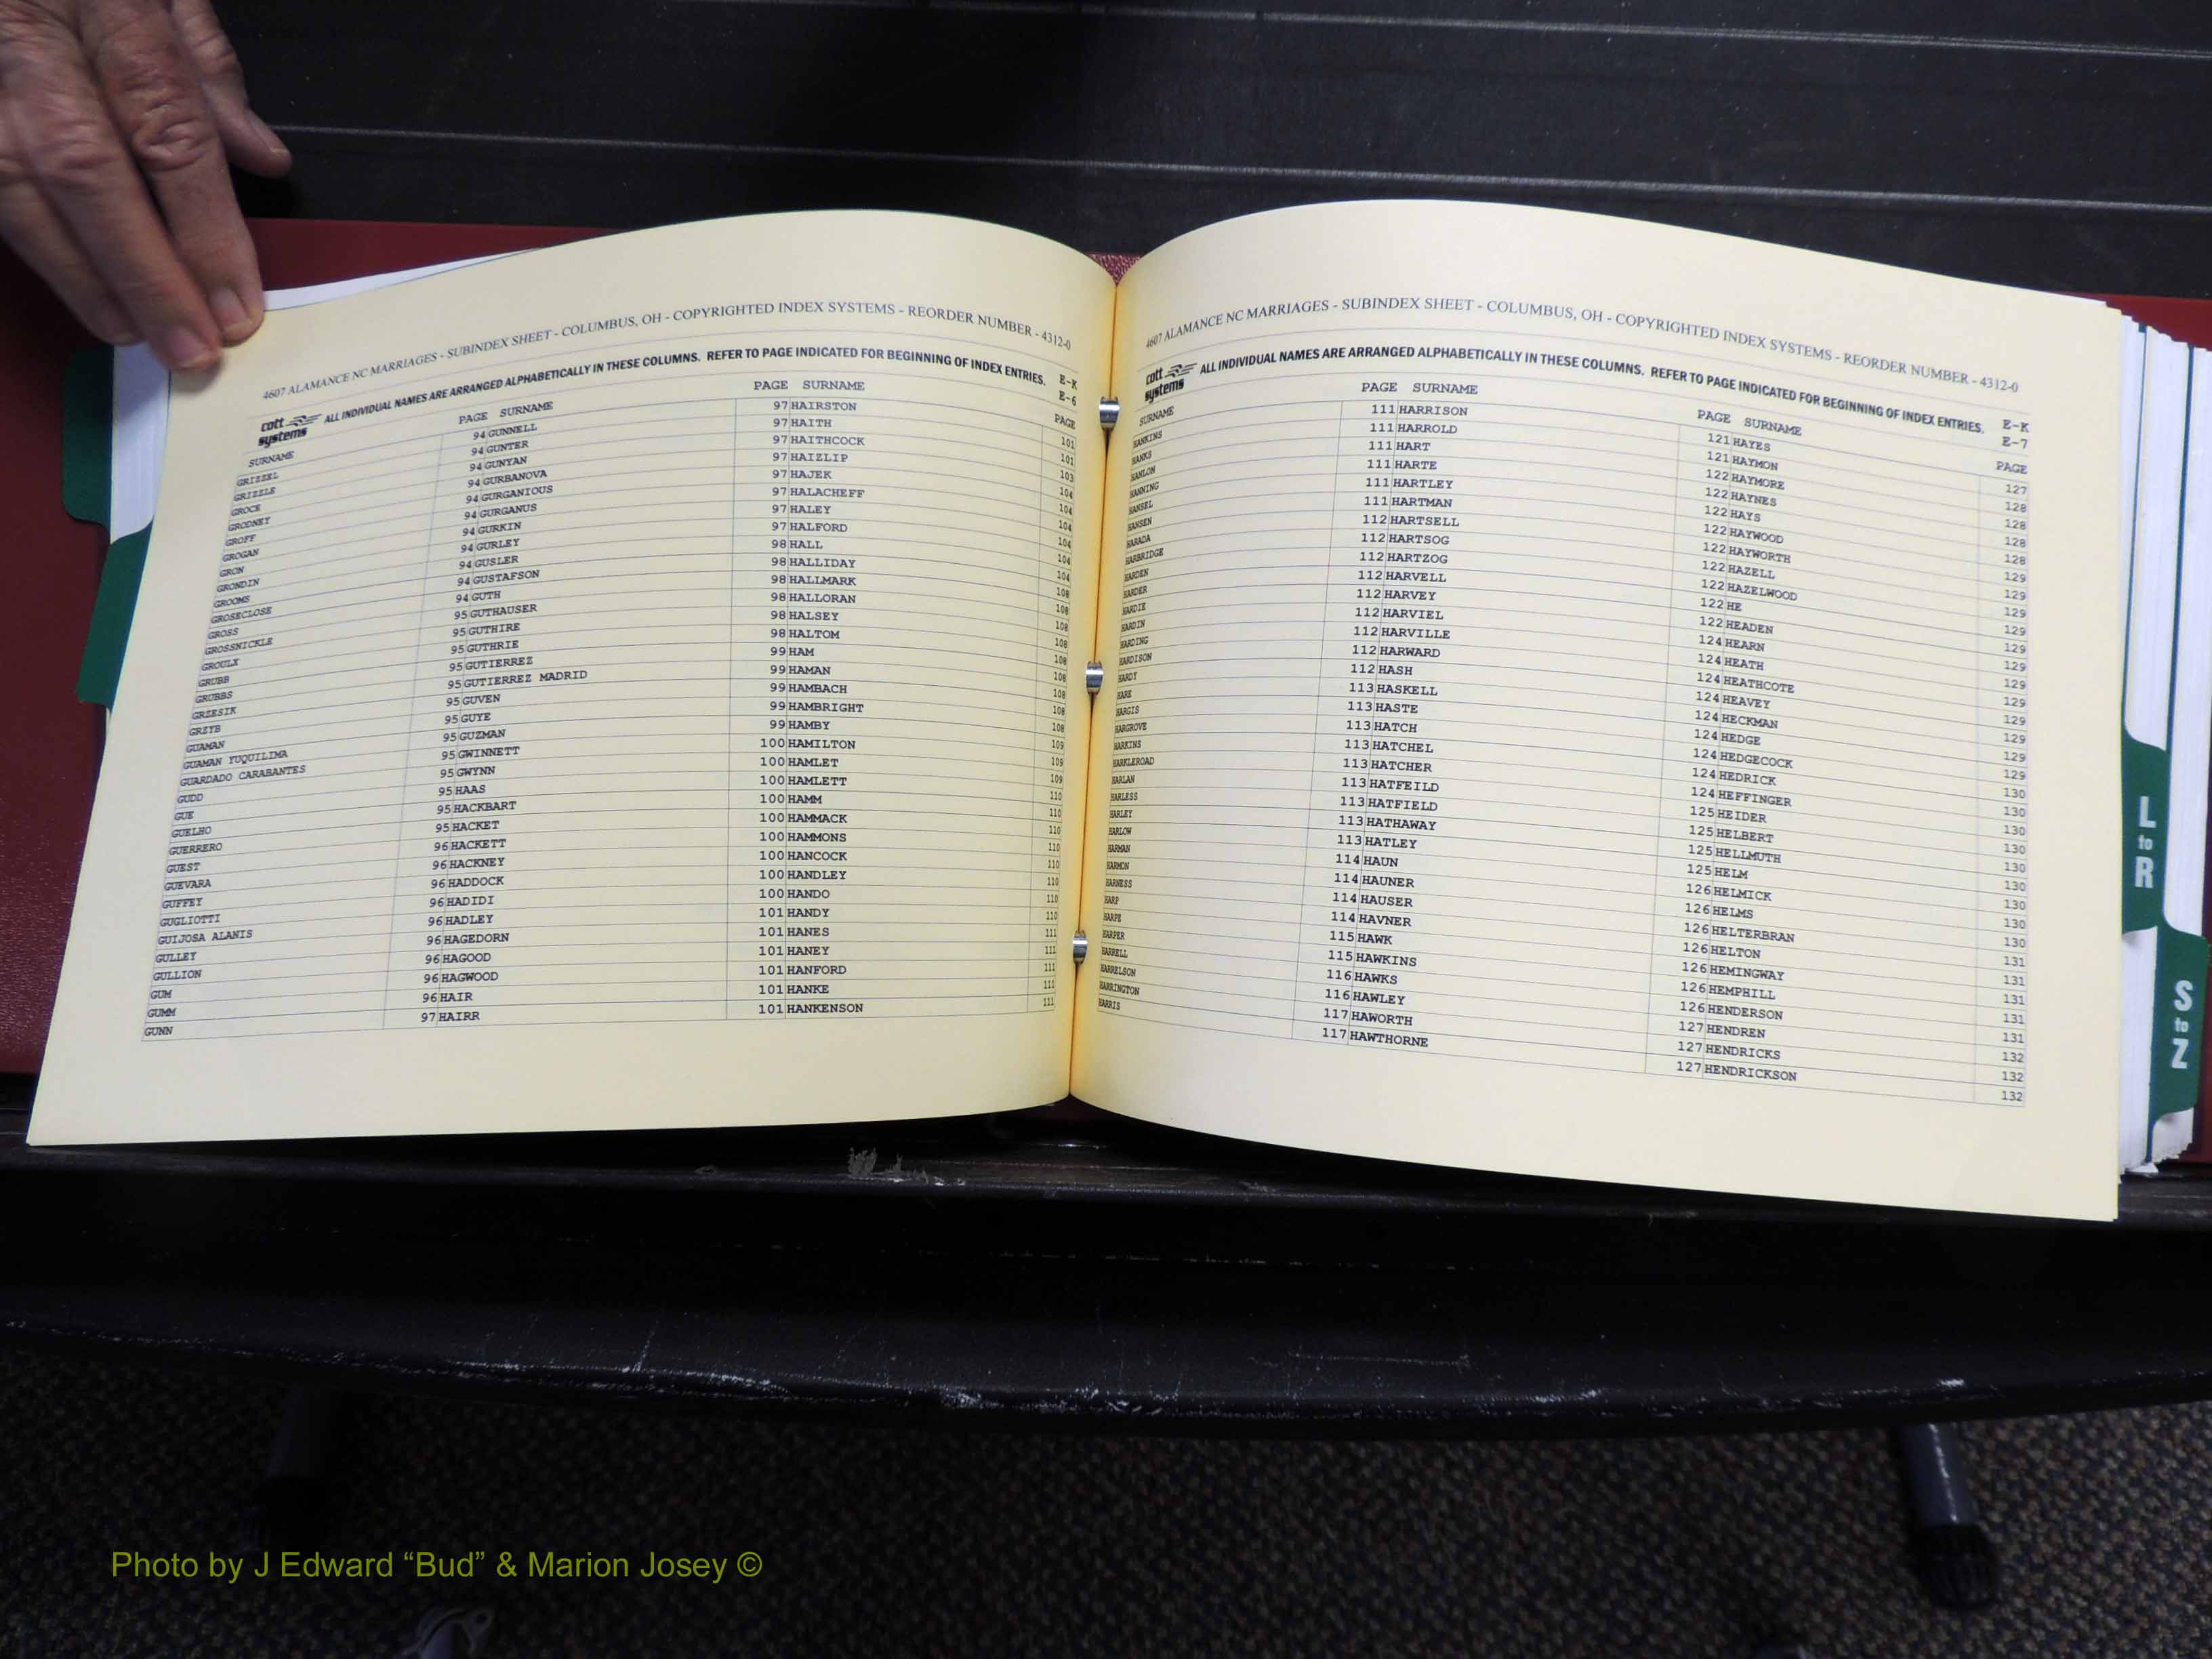 4607 ALAMANCE NC MARRIAGES - SUBINDEX SHEET - COLUMBUS, OH - COPYRIGHTED INDEX SYSTEMS - REORDER NUMBER - 4312-0
cott systems ALL INDIVIDUAL NAMES ARE ARRANGED ALPHABETICALLY IN THESE COLUMNS. REFER TO PAGE INDICATED FOR BEGINNING OF INDEX ENTRIES. E-K
E-6
SURNAME PAGE SURNAME PAGE SURNAME PAGE
GRIZZEL 94 GUNNELL 97 HAIRSTON 101
GRIZZLE 94 GUNTER 97 HAITH 101
GROCE 94 GUNYAN 97 HAITHCOCK 103
GRODNEY 94 GURBANOVA 97 HAIZLIP 104
GROFF 94 GURGANIOUS 97 HAJEK 104
GROGAN 94 GURGANUS 97 HALACHEFF 104
GRON 94 GURKIN 97 HALEY 104
GRONDIN 94 GURLEY 97 HALFORD 104
GROOMS 94 GUSLER 98 HALL 104
GROSECLOSE 94 GUSTAFSON 98 HALLIDAY 108
GROSS 94 GUTH 98 HALLMARK 108
GROSSNICKLE 95 GUTHAUSER 98 HALLORAN 108
GROULX 95 GUTHIRE 98 HALSEY 108
GRUBB 95 GUTHRIE 98 HALTOM 108
GRUBBS 95 GUTIERREZ 99 HAM 108
GRZESIK 95 GUTIERREZ MADRID 99 HAMAN 108
GRZYB 95 GUVEN 99 HAMBACH 108
GUAMAN 95 GUYE 99 HAMBRIGHT 108
GUAMAN YUQUILIMA 95 GUZMAN 99 HAMBY 109
GUARDADO CARABANTES 95 GWINNETT 100 HAMILTON 109
GUDD 95 GWYNN 100 HAMLET 109
GUE 95 HAAS 100 HAMLETT 110
GUELHO 95 HACKBART 100 HAMM 110
GUERRERO 95 HACKET 100 HAMMACK 110
GUEST 96 HACKETT 100 HAMMONS 110
GUEVARA 96 HACKNEY 100 HANCOCK 110
GUFFEY 96 HADDOCK 100 HANDLEY 110
GUGLIOTTI 96 HADIDI 100 HANDO 110
GUIJOSA ALANIS 96 HADLEY 101 HANDY 110
GULLEY 96 HAGEDORN 101 HANES 111
GULLION 96 HAGOOD 101 HANEY 111
GUM 96 HAGWOOD 101 HANFORD 111
GUMM 96 HAIR 101 HANKE 111
GUNN 97 HAIRR 101 HANKENSON 111
4607 ALAMANCE NC MARRIAGES - SUBINDEX SHEET - COLUMBUS, OH - COPYRIGHTED INDEX SYSTEMS - REORDER NUMBER - 4312-0
cott systems ALL INDIVIDUAL NAMES ARE ARRANGED ALPHABETICALLY IN THESE COLUMNS. REFER TO PAGE INDICATED FOR BEGINNING OF INDEX ENTRIES. E-K
E-7
SURNAME PAGE SURNAME PAGE SURNAME PAGE
HANKINS 111 HARRISON 121 HAYES 127
HANKS 111 HARROLD 121 HAYMON 128
HANLON 111 HART 122 HAYMORE 128
HANNING 111 HARTE 122 HAYNES 128
HANSEL 111 HARTLEY 122 HAYS 128
HANSEN 111 HARTMAN 122 HAYWOOD 129
HARADA 112 HARTSELL 122 HAYWORTH 129
HARBRIDGE 112 HARTSOG 122 HAZELL 129
HARDEN 112 HARTZOG 122 HAZELWOOD 129
HARDER 112 HARVELL 122 HE 129
HARDIE 112 HARVEY 122 HEADEN 129
HARDIN 112 HARVIEL 124 HEARN 129
HARDING 112 HARVILLE 124 HEATH 129
HARDISON 112 HARWARD 124 HEATHCOTE 129
HARDY 112 HASH 124 HEAVEY 129
HARE 113 HASKELL 124 HECKMAN 129
HARGIS 113 HASTE 124 HEDGE 129
HARGROVE 113 HATCH 124 HEDGECOCK 130
HARKINS 113 HATCHEL 124 HEDRICK 130
HARKLEROAD 113 HATCHER 124 HEFFINGER 130
HARLAN 113 HATFEILD 125 HEIDER 130
HARLESS 113 HATFIELD 125 HELBERT 130
HARLEY 113 HATHAWAY 125 HELLMUTH 130
HARLOW 113 HATLEY 125 HELM 130
HARMAN 114 HAUN 126 HELMICK 130
HARMON 114 HAUNER 126 HELMS 130
HARNESS 114 HAUSER 126 HELTERBRAN 131
HARP 114 HAVNER 126 HELTON 131
HARPE 115 HAWK 126 HEMINGWAY 131
HARPER 115 HAWKINS 126 HEMPHILL 131
HARRELL 116 HAWKS 126 HENDERSON 131
HARRELSON 116 HAWLEY 127 HENDREN 132
HARRINGTON 117 HAWORTH 127 HENDRICKS 132
HARRIS 117 HAWTHORNE 127 HENDRICKSON 132
L to R
S to Z
Photo by J Edward “Bud” & Marion Josey ©